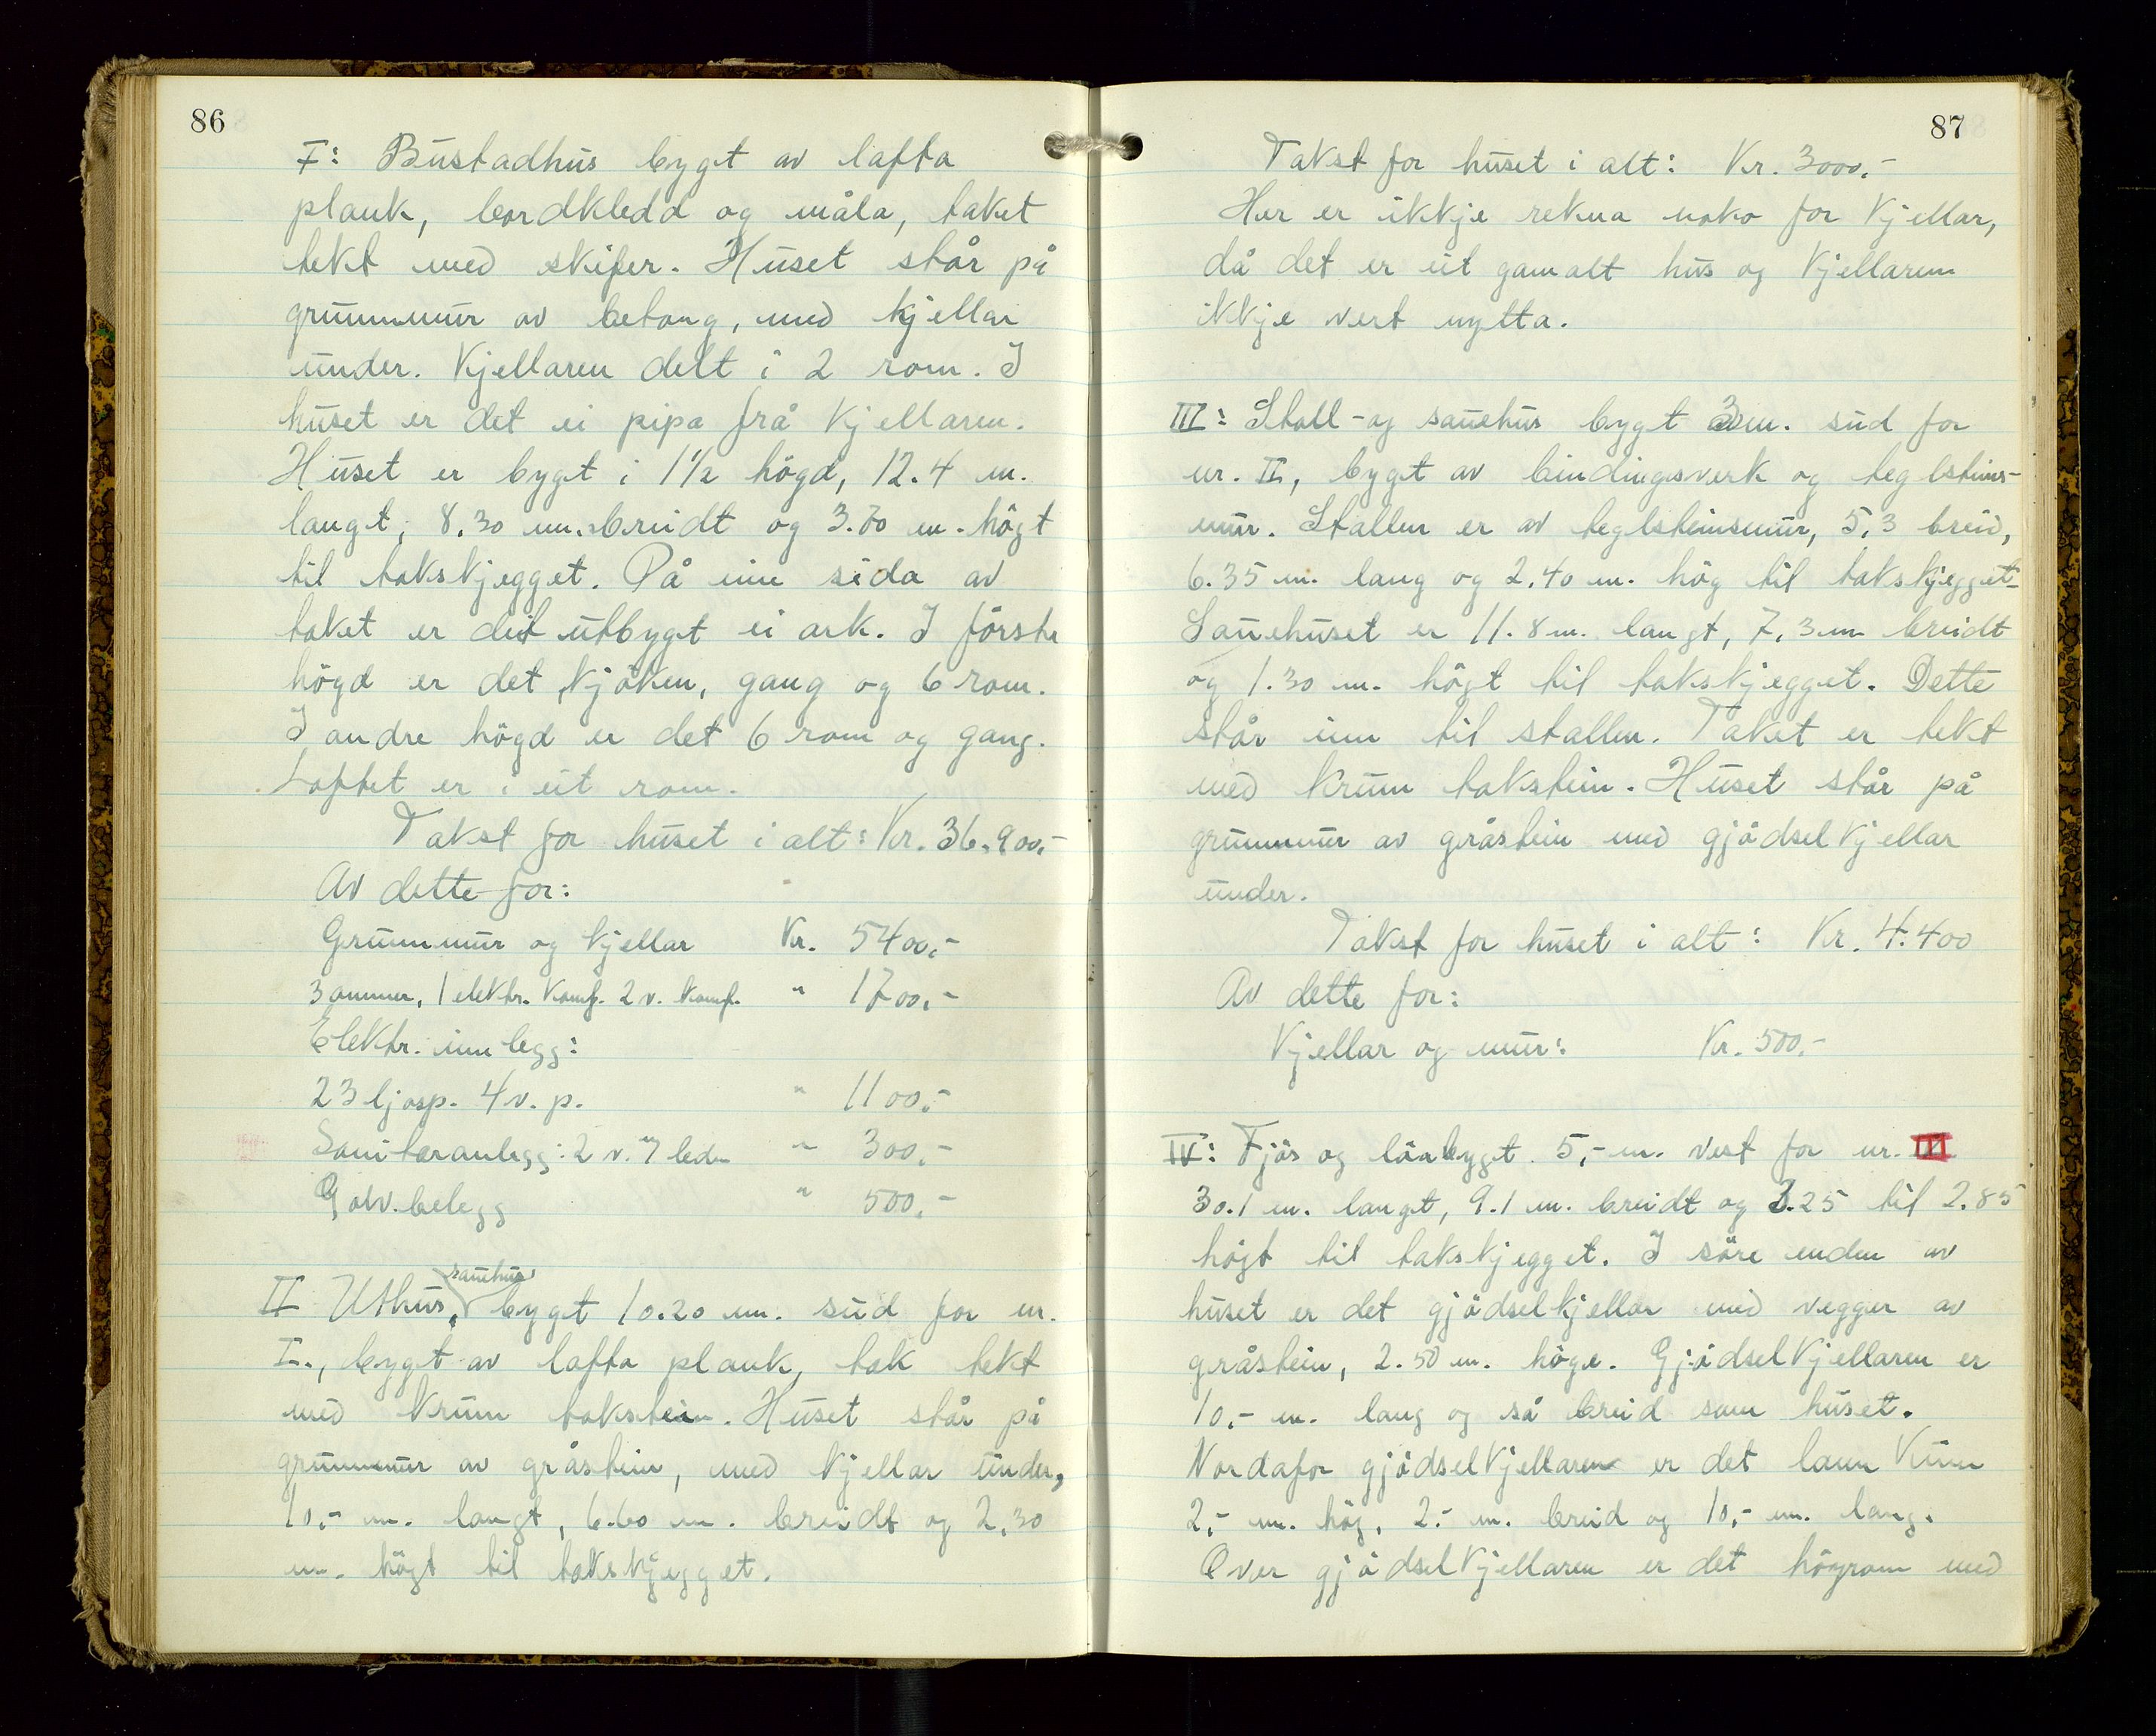 86
I: Bustadhus bygt av lafta
plank, bordkledd og måla, taket
tekt med skifer. Huset står på
grunnmur av betong, med kjellar
under. Kjellaren delt i 2 rom. I
huset er det ei pipa frå kjellaren.
Huset er bygt i 1 1/2 högd, 12.4 m.
langt, 8.30 m. breidt og 3.70 m. högt
til takskjegget. På eine sida av
taket er det utbygt ei ark. I förste
högd er det kjöken, gang og 6 rom.
I andre högd er det 6 rom og gang.
Loftet er i eit rom.
Takst for huset i alt: Kr. 36.900,-
Av dette for:
Grunnmur og kjellar Kr. 5400,-
3 omnar, 1 elektr. Komf. 2 v. komf. " 1700,-
Elektr. innlegg:
23 ljosp. 4 v. p. " 1100,-
Saniteranlegg: 2 v. " 300,-
Golv.belegg " 500,-
II Uthus, sauehus bygt 10.20 m. sud for nr.
I., bygt av lafta plank, tak tekt
med krum takstein. Huset står på
grunnmur av gråstein, med kjellar under,
10,- m. langt, 6.60 m. breidt og 2,30
m. högt til takskjegget.
87
Takst for huset i alt: Kr. 3000,-
Her er ikkje rekna noko for kjellar,
då det er eit gamalt hus og kjellaren
ikkje vert nytta.
III: Stall- og sauehus bygt 3 m. sud for
nr. II, bygt av bindingsverk og teglsteins-
mur. Stallen er av teglsteinsmur, 5,3 breid,
6.35 m. lang og 2.40 m. hög til takskjegget.
Sauehuset er 11.8 m. langt, 7,3 m breidt
og 1.30 m. högt til takskjegget. Dette
står inn til stallen. Taket er tekt
med krum takstein. Huset står på
grunnmur av gråstein med gjödselkjellar
under.
Takst for huset i alt: Kr. 4.400
Av dette for:
Kjellar og mur: Kr. 500,-
IV: Fjös og löa bygt 5,- m. vest for nr. III
30.1 m. langt, 9.1 m. breidt og 3.25 til 2.85
högt til takskjegget. I söre enden av
huset er det gjödselkjellar med vegger av
gråstein, 2.50 m. höge. Gjödselkjellaren er
10,- m. lang og så breid som huset.
Nordafor gjödselkjellaren er det laun Kum
2,- m. hög, 2.- m. breid og 10,- m. lang.
Over gjödselkjellaren er det högrom med